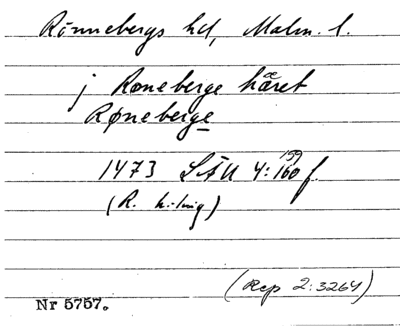 Rönnebergs hd, Malm. l.
j Røneberge häret
Røneberge
1473 LÅU 4: 159 f.
(R. h:ing)
(Rep 2:3264)
Nr 5757.